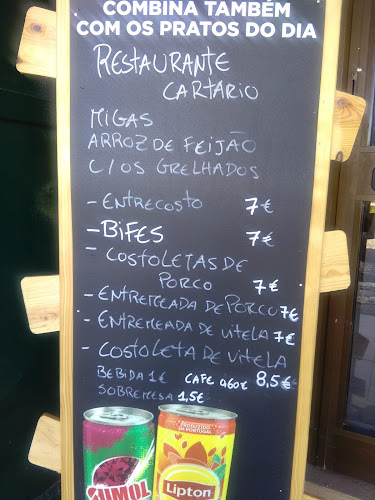 COMBINA TAMBÉM
COM OS PRATOS DO DIA
RESTAURANTE
CARTARIO
MIGAS
ARROZ DE FEIJÃO
C/OS GRELHADOS
- ENTRECOSTO 7€
- BIFES 7€
- COSTOLETAS DE
PORCO 7€
- ENTREMEADA DE PORCO 7€
- ENTREMEADA DE VITELA 7€
- COSTOLETA DE VITELA
8,5€
BEBIDA 1€ CAFE 0,60€
SOBREMESA 1,5€
PRODUZIDO
EM PORTUGAL
SUMOL
Lipton